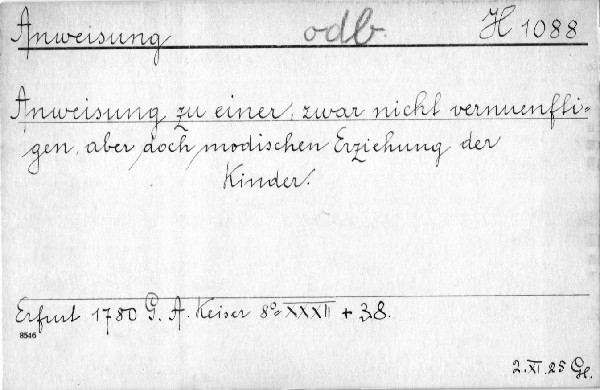 Anweisung odb. H 1088
Anweisung zu einer, zwar nicht vernuenfti=
gen, aber doch modischen Erziehung der
Kinder.
Erfurt 1780 G. A. Keiser 8° XXXII + 38.
8546
2. XI. 25 Gl.